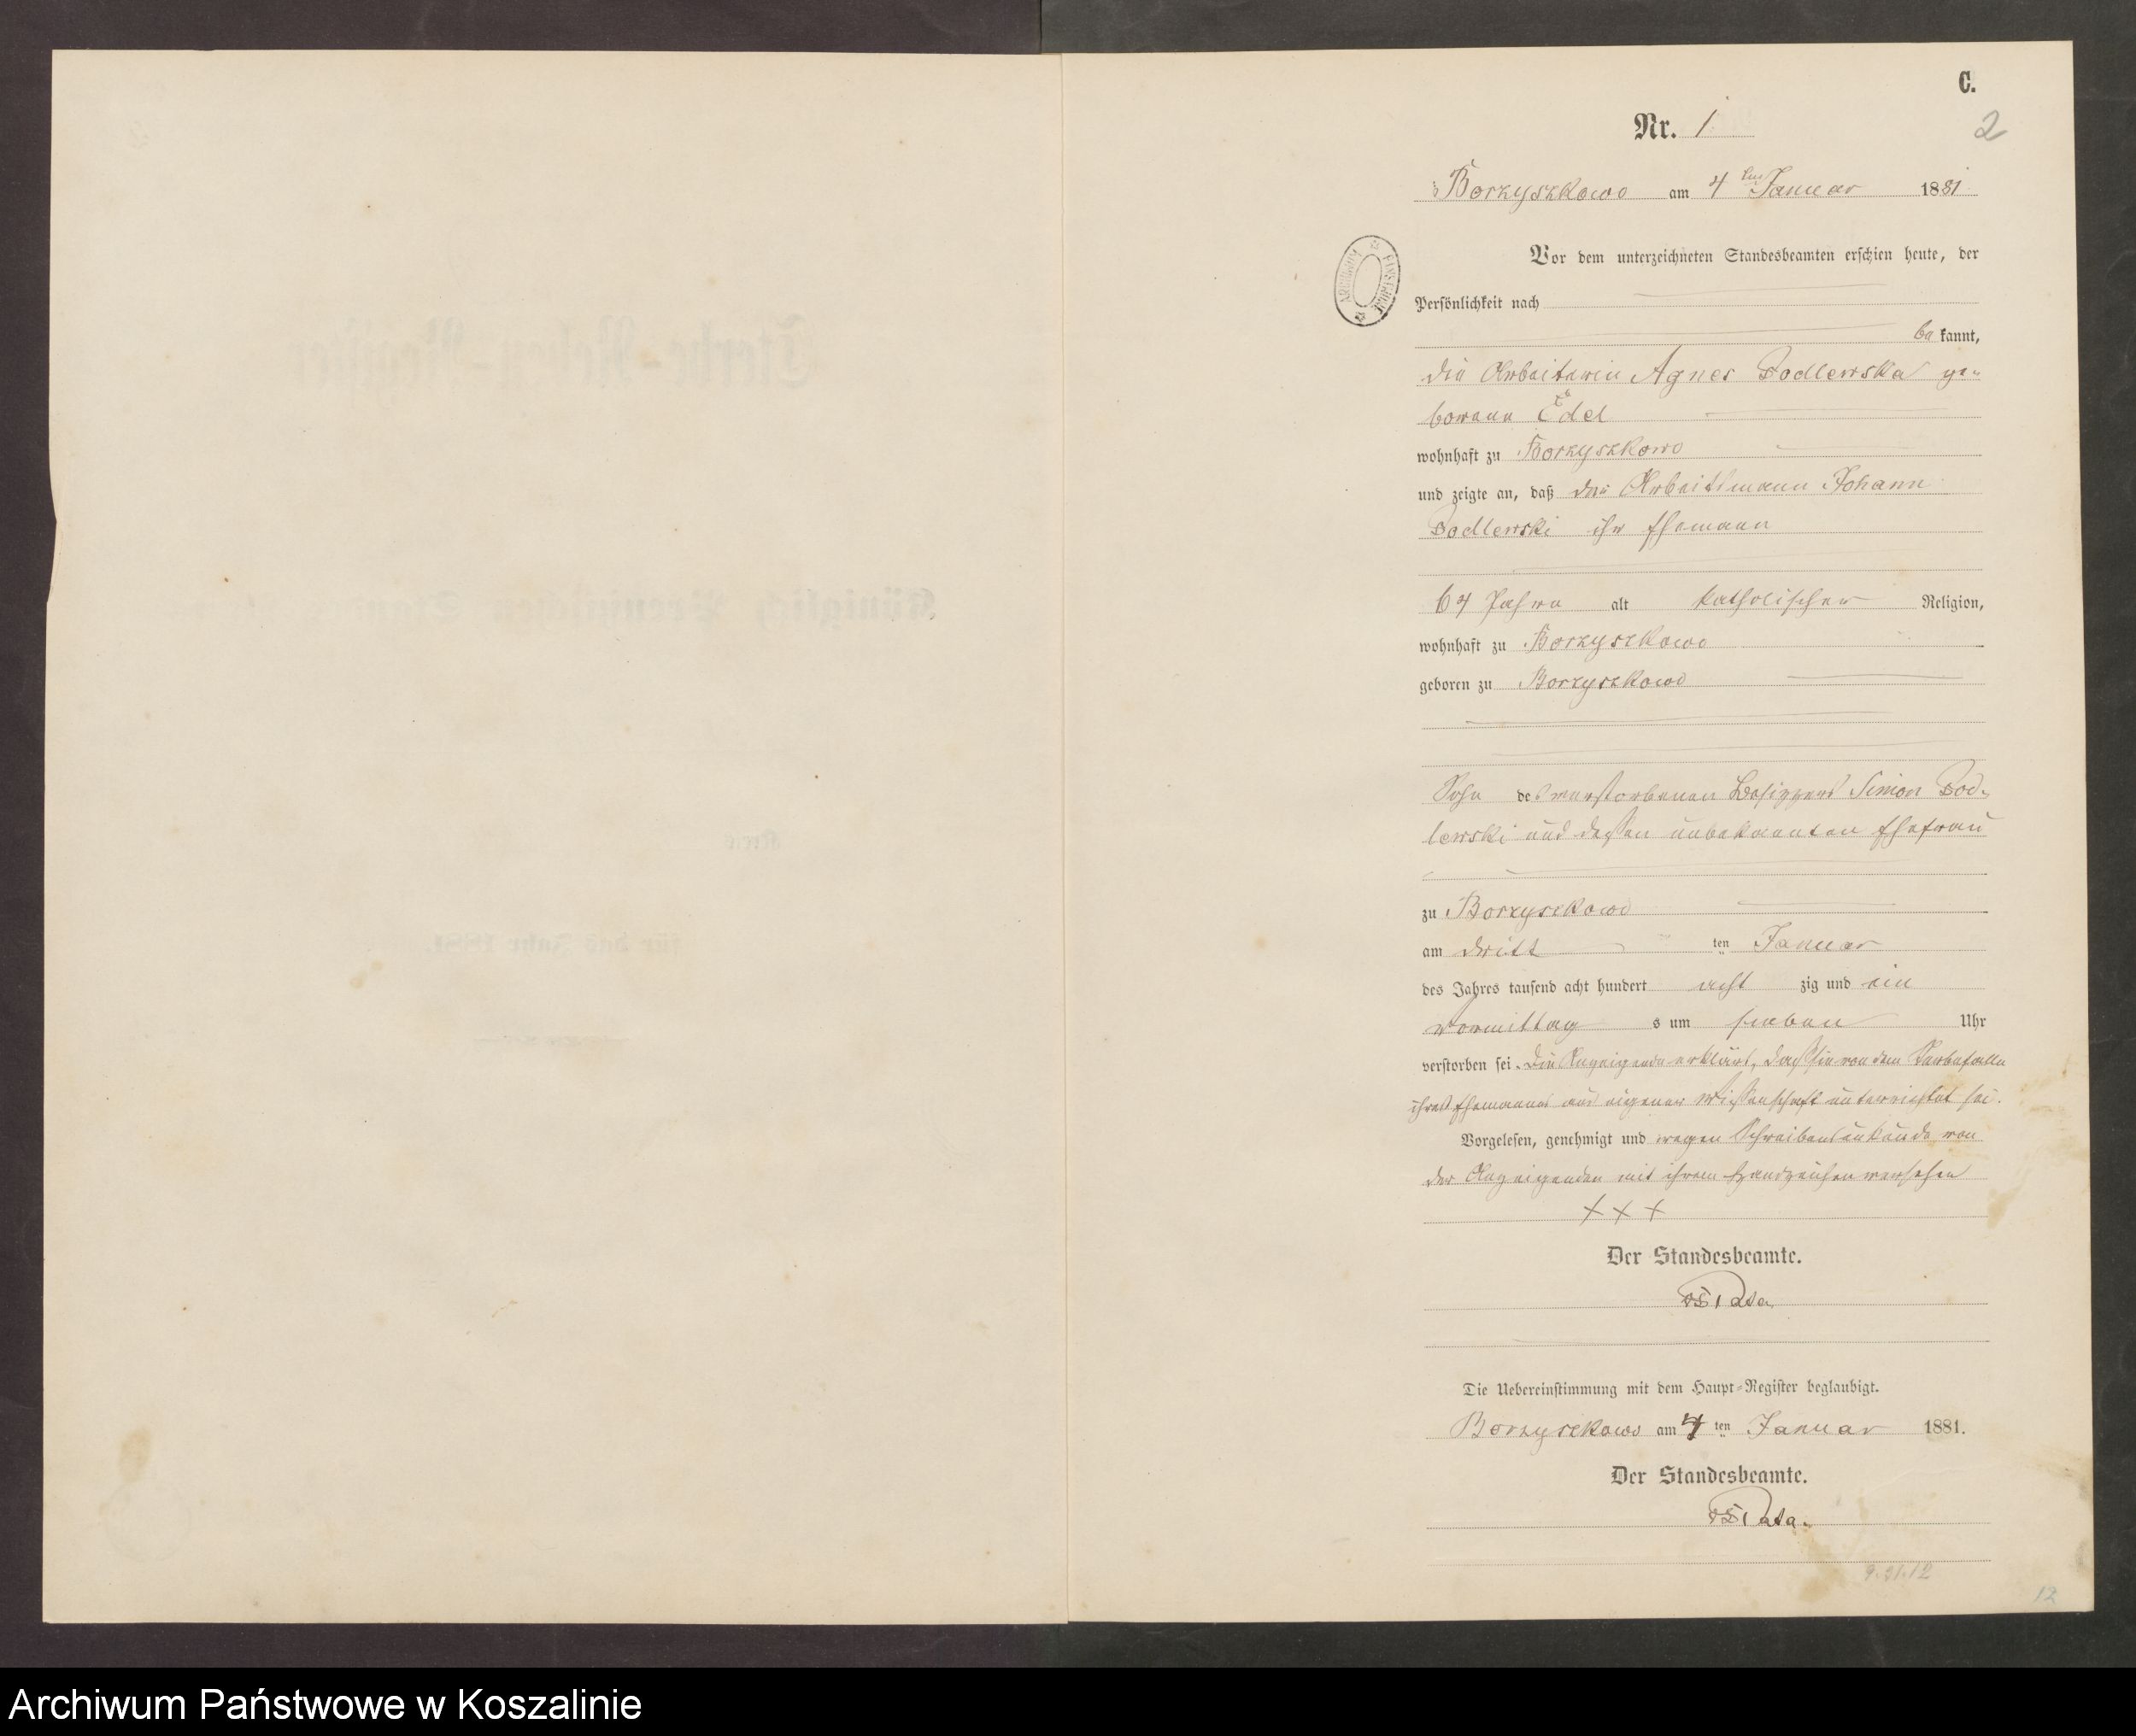 C.
Nr. 1.
2
Borzyszkowo am 4ten Januar 1881.
Vor dem unterzeichneten Standesbeamten erschien heute, der
Persönlichkeit nach
be kannt,
die Arbeiterin Agnes Podlewska ge-
borene Edel
wohnhaft zu Borzyszkowo
und zeigte an, daß der Arbeitsmann Johann
Podlewski ihr Ehemann
64 Jahre alt katholischer Religion,
wohnhaft zu Borzyszkowo
geboren zu Borzyszkowo
Sohn des verstorbenen Besitzers Simon Pod-
lewski und dessen unbekannten Ehefrau
zu Borzyszkowo
am dritt ten Januar
des Jahres tausend acht hundert acht zig und ein
Vormittag s um sieben Uhr
verstorben sei. Die Anzeigende erklärt, daß sie von dem Sterbefalle
ihres Ehemannes aus eigener Wissenschaft unterrichtet sei.
Vorgelesen, genehmigt und wegen Schreibensunkunde von
der Anzeigenden mit ihrem Handzeichen versehen
+ + +
Der Standesbeamte.
Die Uebereinstimmung mit dem Haupt-Register beglaubigt.
Borzyszkowo am 4 ten Januar 1881.
Der Standesbeamte.
12
Archiwum Państwowe w Koszalinie